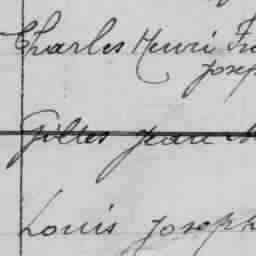 Charles Henri Fr
Josep
Gilles Jean
Louis Joseph